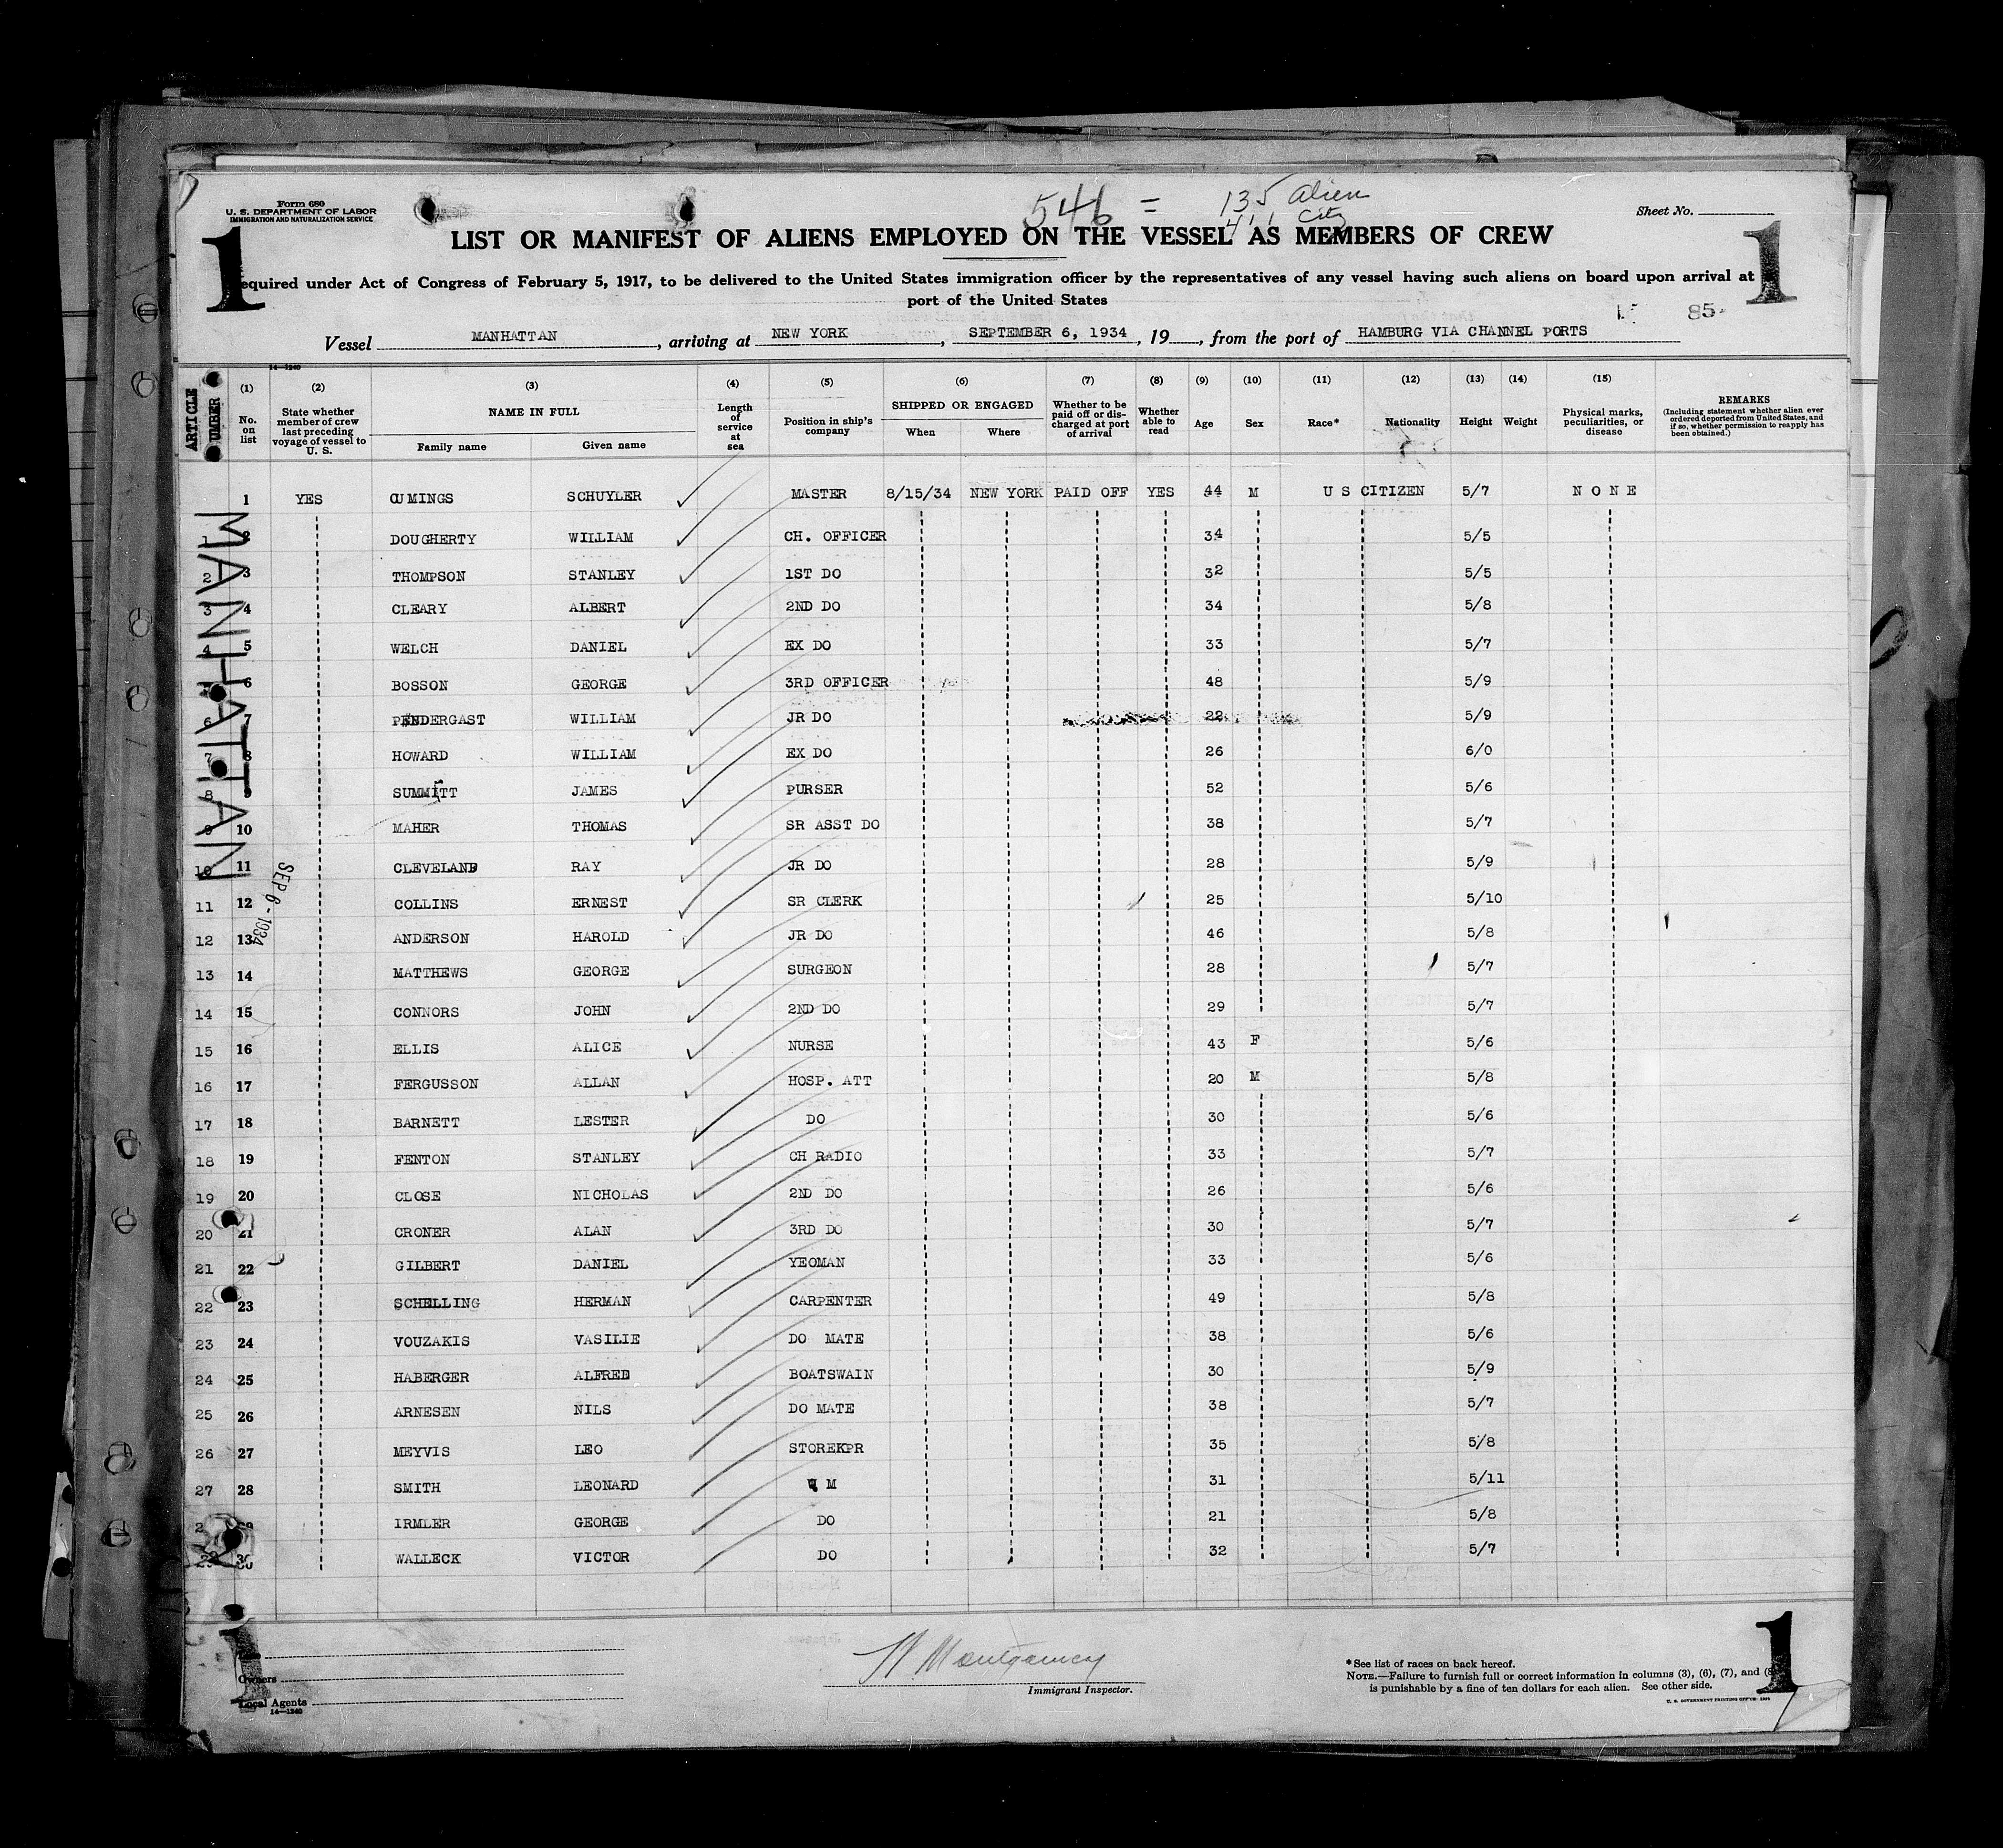 546 = 135 Alien
411 City
Form 680
U. S. DEPARTMENT OF LABOR
IMMIGRATION AND NATURALIZATION SERVICE
Sheet No.
1 1
LIST OR MANIFEST OF ALIENS EMPLOYED ON THE VESSEL AS MEMBERS OF CREW
equired under Act of Congress of February 5, 1917, to be delivered to the United States immigration officer by the representatives of any vessel having such aliens on board upon arrival at
port of the United States
85
Vessel MANHATTAN, arriving at NEW YORK, SEPTEMBER 6, 1934, 19, from the port of HAMBURG VIA CHANNEL PORTS
14—1240
ARTICLE UMBER
(1) No. on list
(2) State whether member of crew last preceding voyage of vessel to U. S.
(3) NAME IN FULL Family name Given name
(4) Length of service at sea
(5) Position in ship's company
(6) SHIPPED OR ENGAGED When Where
(7) Whether to be paid off or discharged at port of arrival
(8) Whether able to read
(9) Age
(10) Sex
(11) Race*
(12) Nationality
(13) Height
(14) Weight
(15) Physical marks, peculiarities, or disease
REMARKS (Including statement whether alien ever ordered deported from United States, and if so, whether permission to reapply has been obtained.)
1 YES CUMINGS SCHUYLER MASTER 8/15/34 NEW YORK PAID OFF YES 44 M U S CITIZEN 5/7 NONE
1 2 DOUGHERTY WILLIAM CH. OFFICER 34 5/5
2 3 THOMPSON STANLEY 1ST DO 32 5/5
3 4 CLEARY ALBERT 2ND DO 34 5/8
4 5 WELCH DANIEL EX DO 33 5/7
6 BOSSON GEORGE 3RD OFFICER 48 5/9
6 7 PENDERGAST WILLIAM JR DO 22 5/9
7 8 HOWARD WILLIAM EX DO 26 6/0
8 9 SUMMITT JAMES PURSER 52 5/6
9 10 MAHER THOMAS SR ASST DO 38 5/7
10 11 CLEVELAND RAY JR DO 28 5/9
11 12 COLLINS ERNEST SR CLERK 25 5/10
12 13 ANDERSON HAROLD JR DO 46 5/8
13 14 MATTHEWS GEORGE SURGEON 28 5/7
14 15 CONNORS JOHN 2ND DO 29 5/7
15 16 ELLIS ALICE NURSE 43 F 5/6
16 17 FERGUSSON ALLAN HOSP. ATT 20 M 5/8
17 18 BARNETT LESTER DO 30 5/6
18 19 FENTON STANLEY CH RADIO 33 5/7
19 20 CLOSE NICHOLAS 2ND DO 26 5/6
20 21 CRONER ALAN 3RD DO 30 5/7
21 22 GILBERT DANIEL YEOMAN 33 5/6
22 23 SCHELLING HERMAN CARPENTER 49 5/8
23 24 VOUZAKIS VASILIE DO MATE 38 5/6
24 25 HABERGER ALFRED BOATSWAIN 30 5/9
25 26 ARNESEN NILS DO MATE 38 5/7
26 27 MEYVIS LEO STOREKPR 35 5/8
27 28 SMITH LEONARD Q M 31 5/11
IRMLER GEORGE DO 21 5/8
29 30 WALLECK VICTOR DO 32 5/7
MANHATTAN
SEP 6 - 1934
1
Owners
Local Agents
14—1240
W Montgomery
Immigrant Inspector.
*See list of races on back hereof.
NOTE.—Failure to furnish full or correct information in columns (3), (6), (7), and (8
is punishable by a fine of ten dollars for each alien. See other side.
1